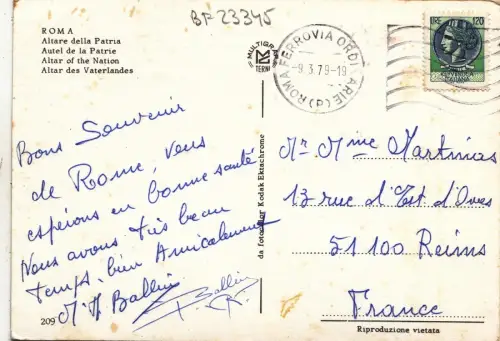 BF 23345
ROMA
Altare della Patria
Autel de la Patrie
Altar of the Nation
Altar des Vaterlandes
MULTIGRAF
TERNI
ROMA FERROVIA ORDINARIE (P)
-9.3.79-19
LIRE 120
Bons Souvenir
de Rome, vous
espérons en bonne santé
Nous avons très beau
temps. bien Amicalement
Ballin
R.
Mr Mme Martinas
13 rue d'Est d'Oves
51100 Reims
France
da fotocolor Kodak Ektachrome
209
Riproduzione vietata